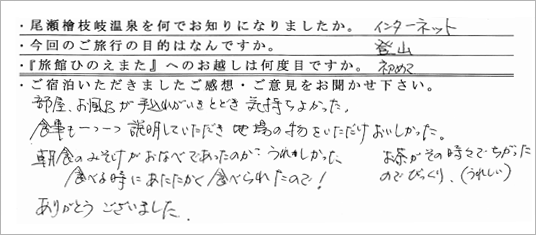 ・尾瀬檜枝岐温泉を何でお知りになりましたか。 インターネット
・今回のご旅行の目的はなんですか。 登山
・『旅館ひのえまた』へのお越しは何度目ですか。 初めて
・ご宿泊いただきましたご感想・ご意見をお聞かせ下さい。
部屋、お風呂が手入れがいきとどき気持ちよかった。
食事も一つ一つ説明していただき地場の物をいただけおいしかった。
朝食のみそ汁がおなべであったのがうれしかった
食べる時にあたたかく食べられたので!
お茶がその時々でちがった
のでびっくり、(うれしい)
ありがとうございました。